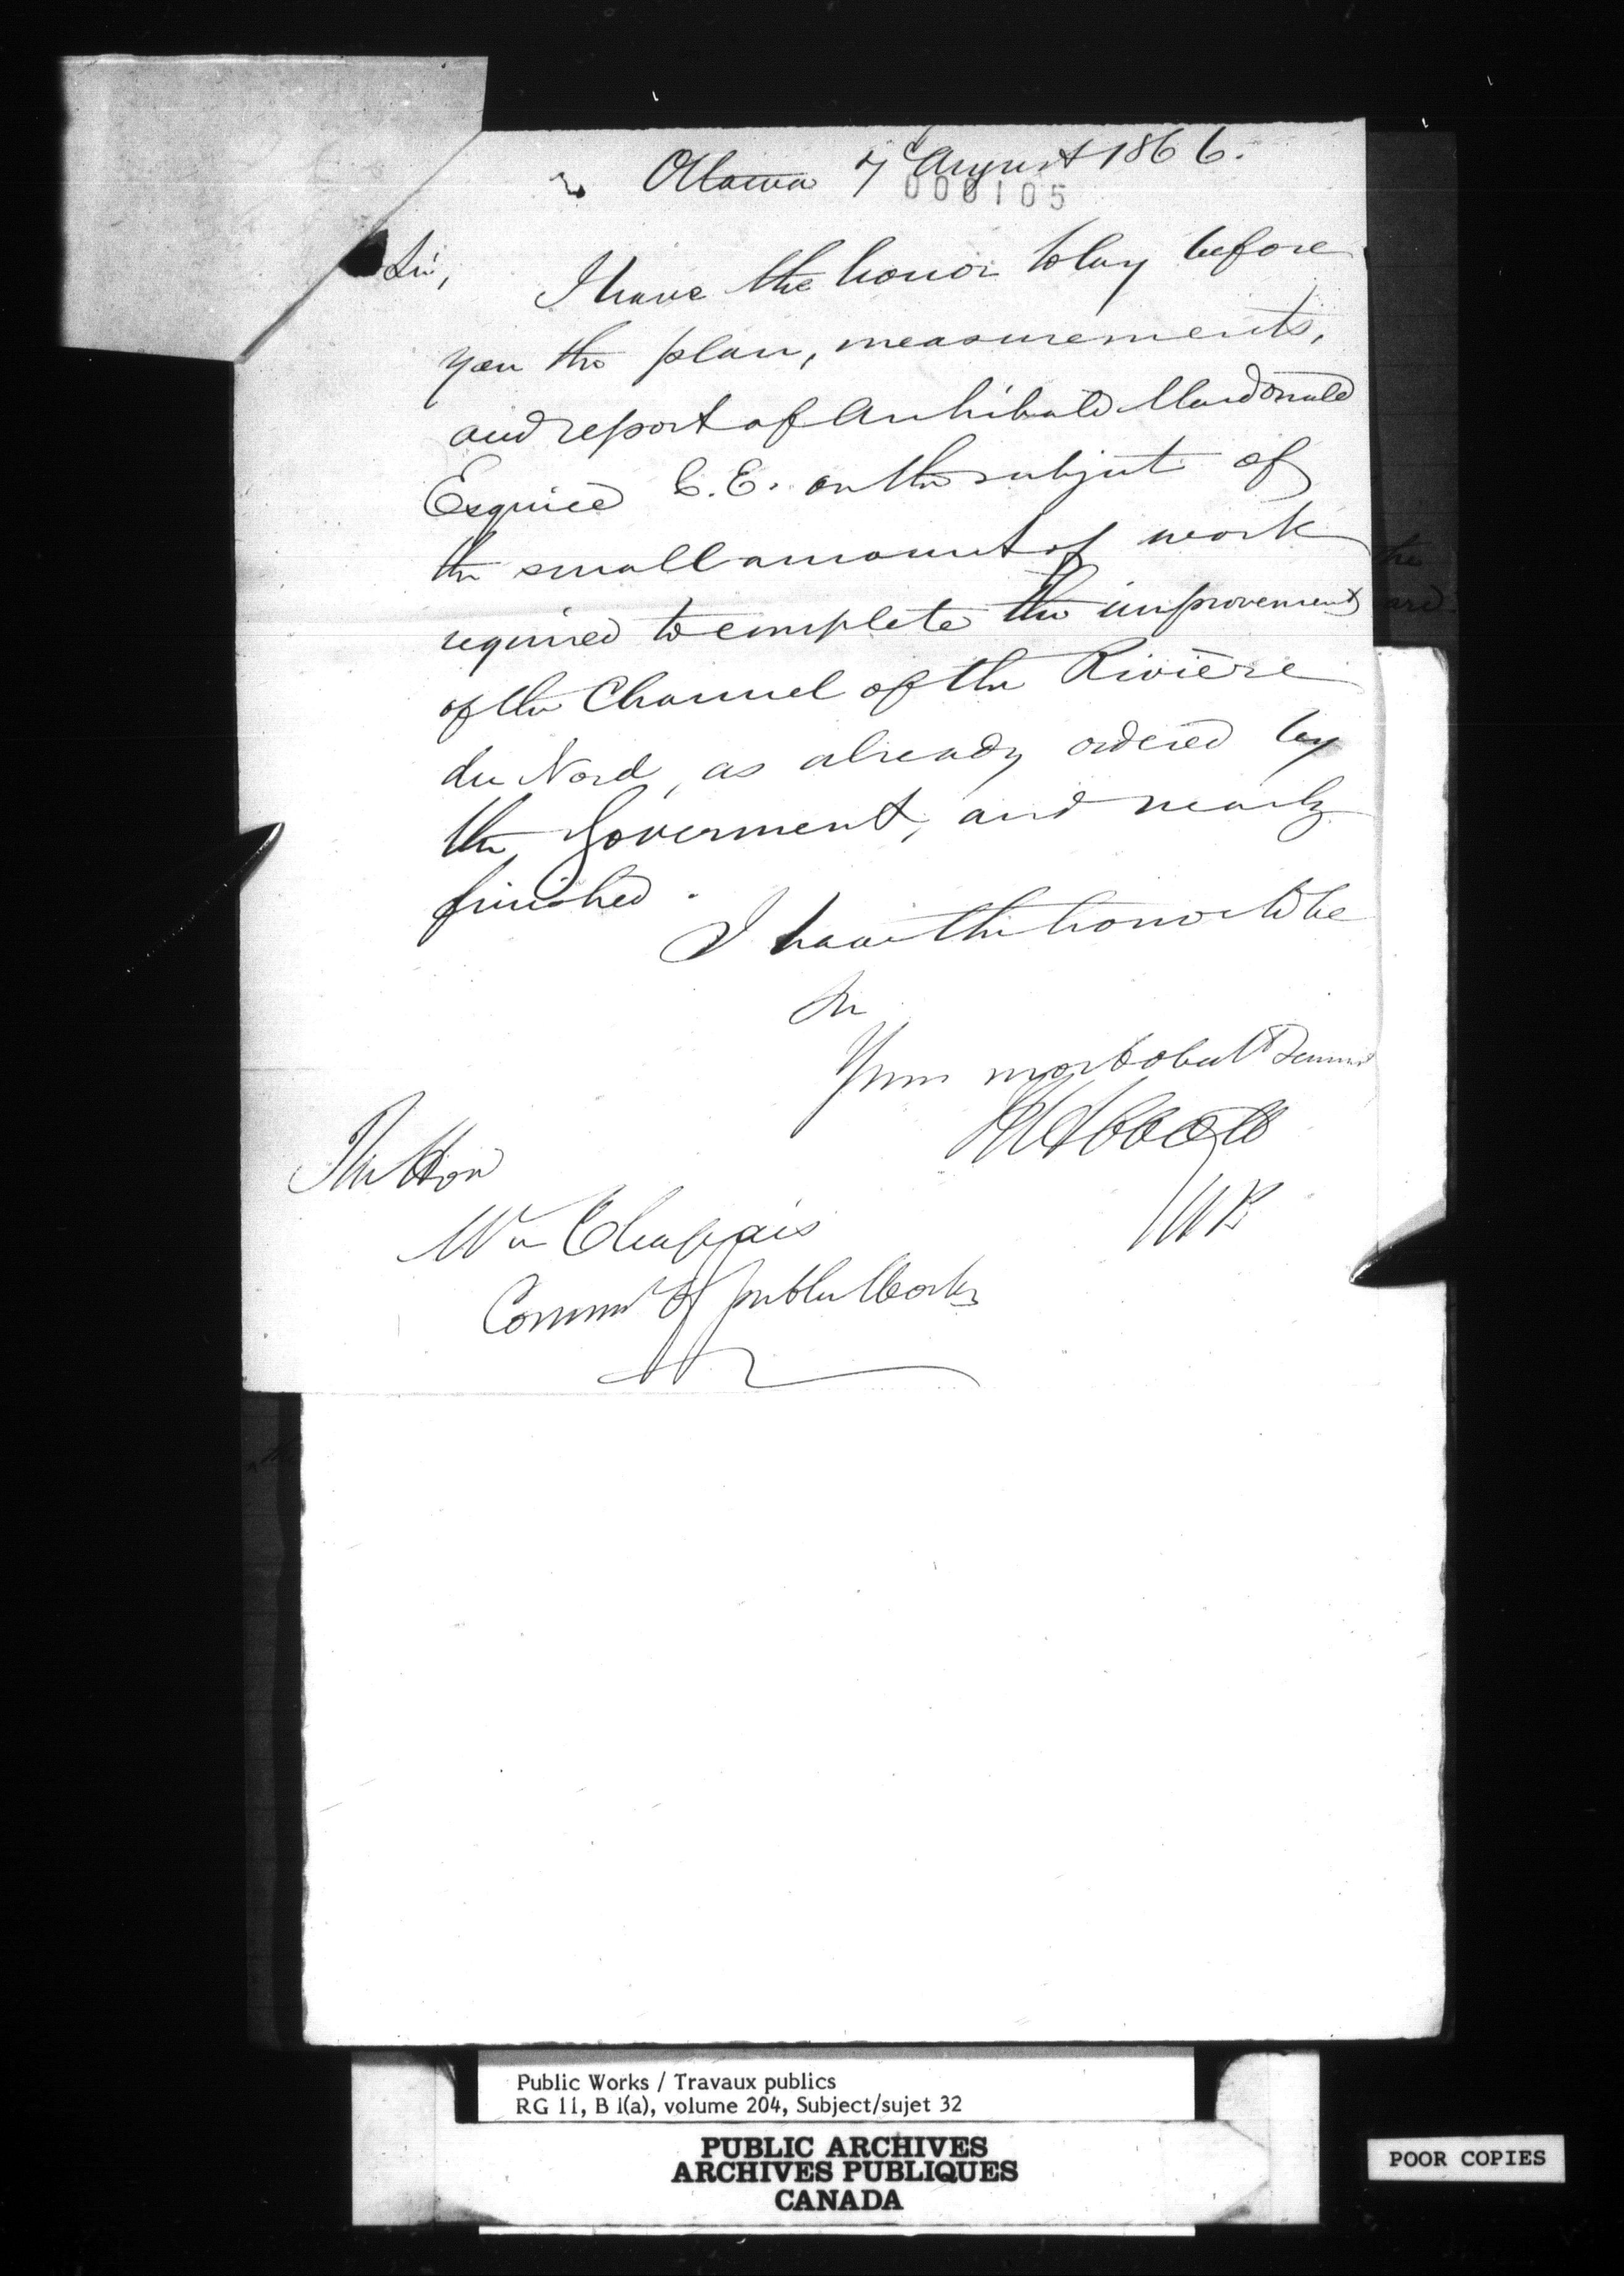 Ottawa 7 August 1866.
000105
Sir,
I have the honor to lay before
you the plan, measurements,
and report of Archibald Macdonald
Esquire C.E. on the subject of
the small amount of work
required to complete the improvement
of the Channel of the Rivière
du Nord, as already ordered by
the Goverment, and nearly
finished.
I have the honor to be
Sir
Your most obedt Servant
JJC Abbott
MP
The Hon
Mr Chapais
Commr of public Works
the
Public Works / Travaux publics
RG 11, B 1(a), volume 204, Subject/sujet 32
PUBLIC ARCHIVES
ARCHIVES PUBLIQUES
CANADA
POOR COPIES